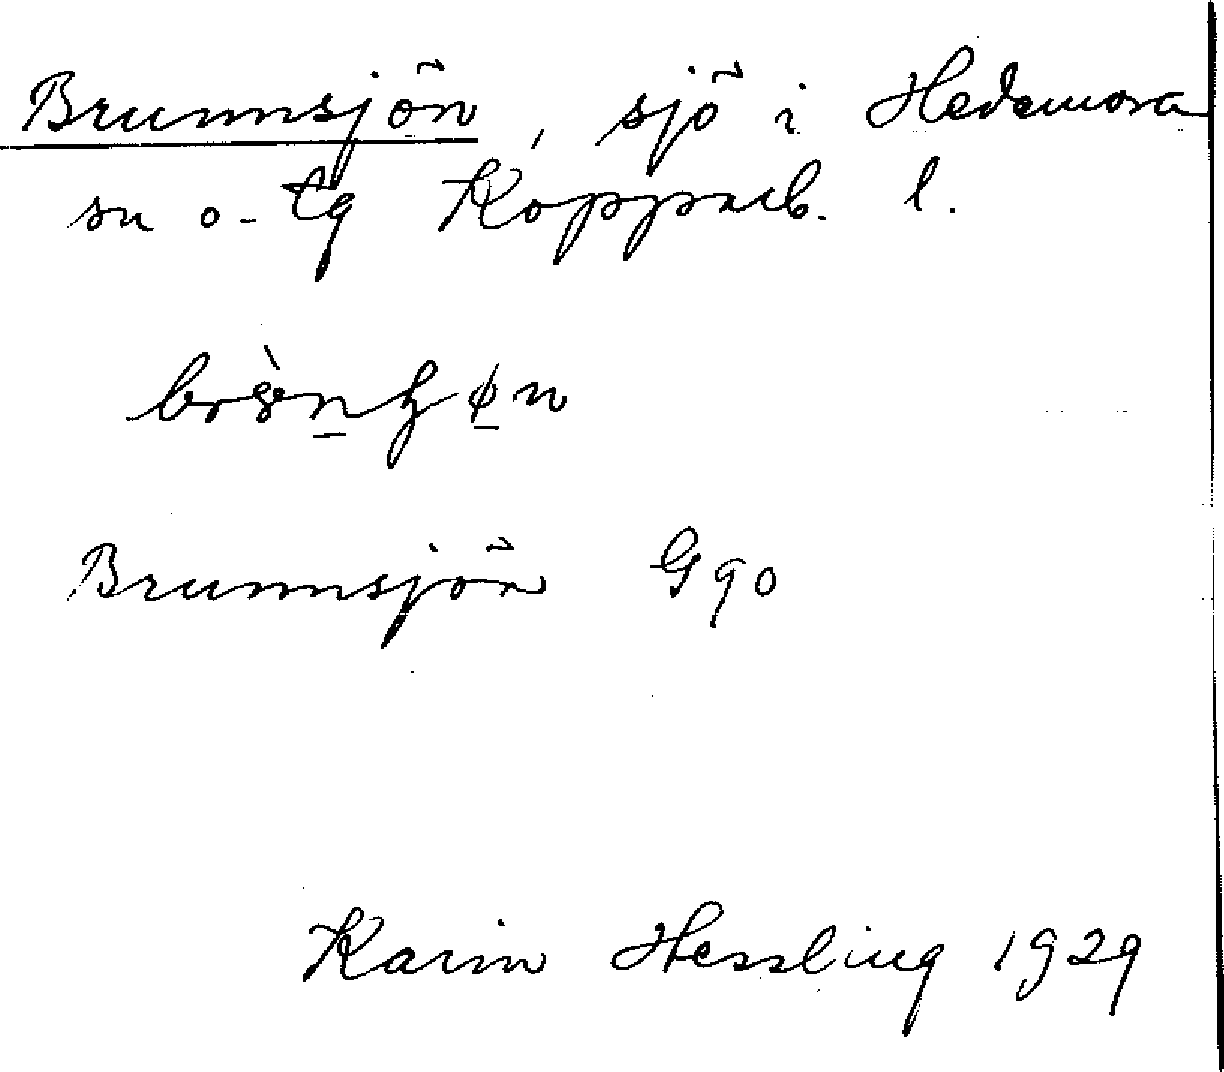 Brunnsjön, sjö i Hedemora
sn o. tg Kopparb. l.
Brunnsjön G 90
Karin Hessling 1929